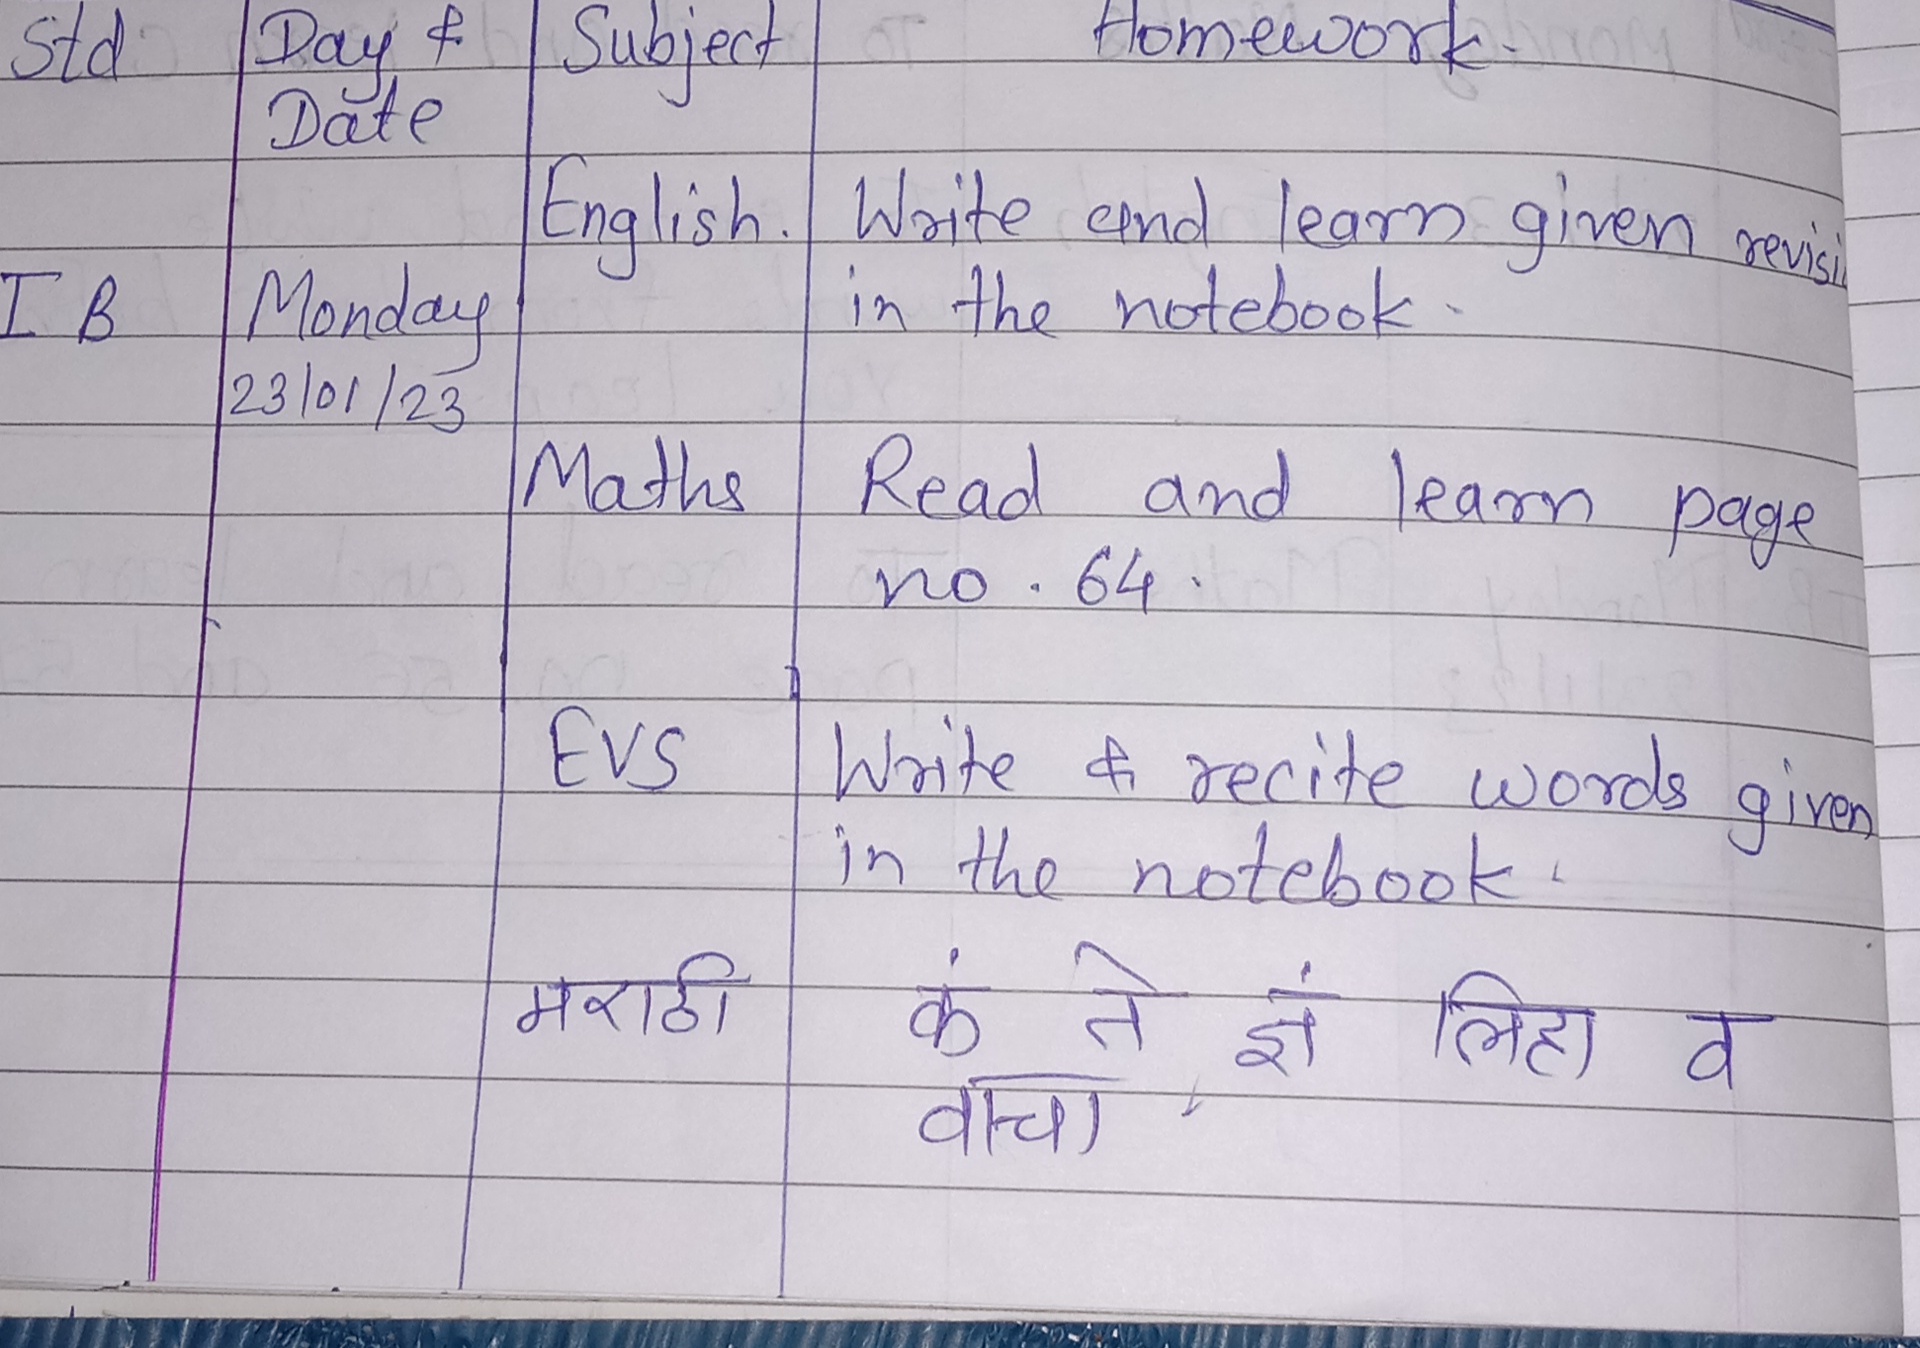 Std Day & Subject Homework.
Date
English. Write and learn given revisi
I B Monday in the notebook.
23/01/23
Maths Read and learn page
no. 64.
EVS Write & recite words given
in the notebook.
मराठी कं ते ज्ञं लिहा व
वाचा